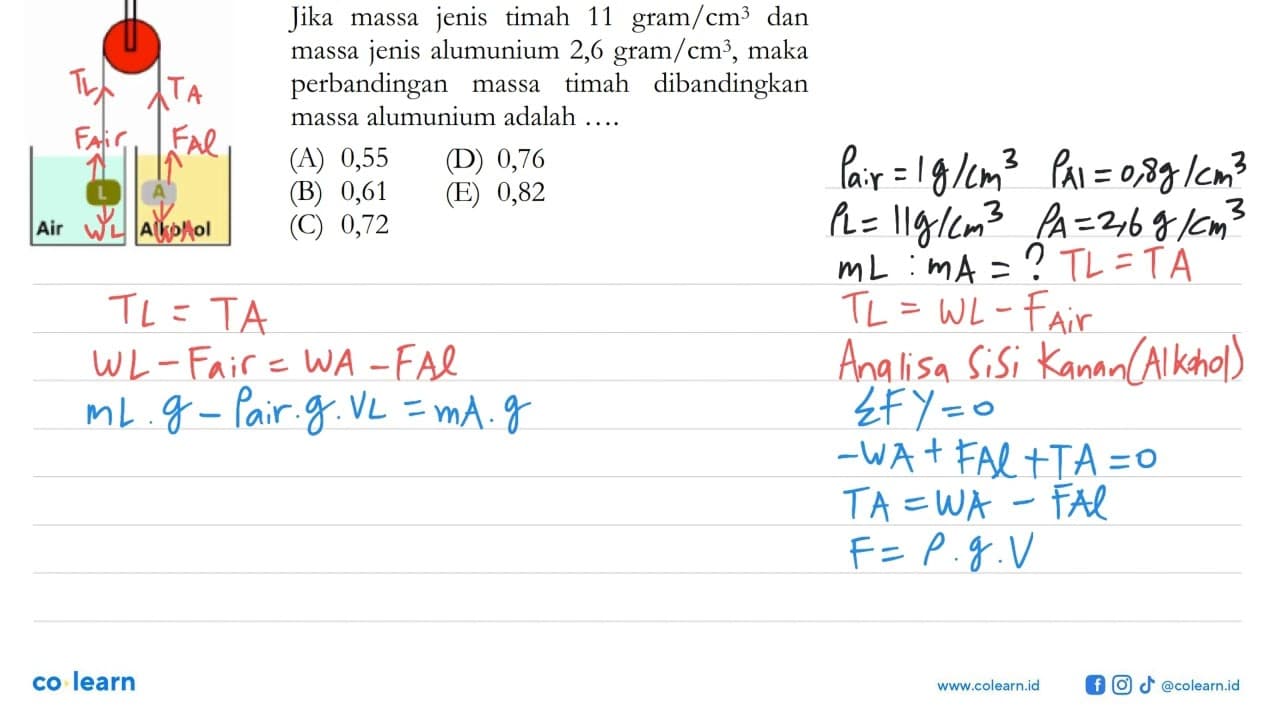 Jika massa jenis timah 11 gram/cm³ dan
massa jenis alumunium 2,6 gram/cm³, maka
perbandingan massa timah dibandingkan
massa alumunium adalah ....
(A) 0,55 (D) 0,76
(B) 0,61 (E) 0,82
(C) 0,72
TL TA
FAir FAl
L A
Air WL Alkohol WA
ρair = 1 g/cm³ ρAl = 0,8 g/cm³
ρL = 11 g/cm³ ρA = 2,6 g/cm³
mL : mA = ? TL = TA
TL = WL - FAir
Analisa Sisi Kanan (Alkohol)
ΣFY = 0
-WA + FAl + TA = 0
TA = WA - FAl
F = ρ . g . V
TL = TA
WL - Fair = WA - FAl
mL . g - ρair . g . VL = mA . g
co learn
www.colearn.id
@colearn.id